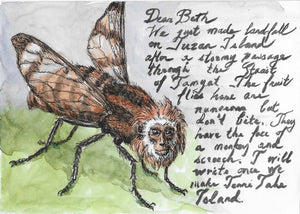 Dear Beth
We just made landfall
on Tuzan Island
after a stormy passage
through the Strait
of Tangat. The fruit
flies here are
numerous but
don't bite. They
have the face of
a monkey and
screech. I will
write once we
make Temi Take
Island